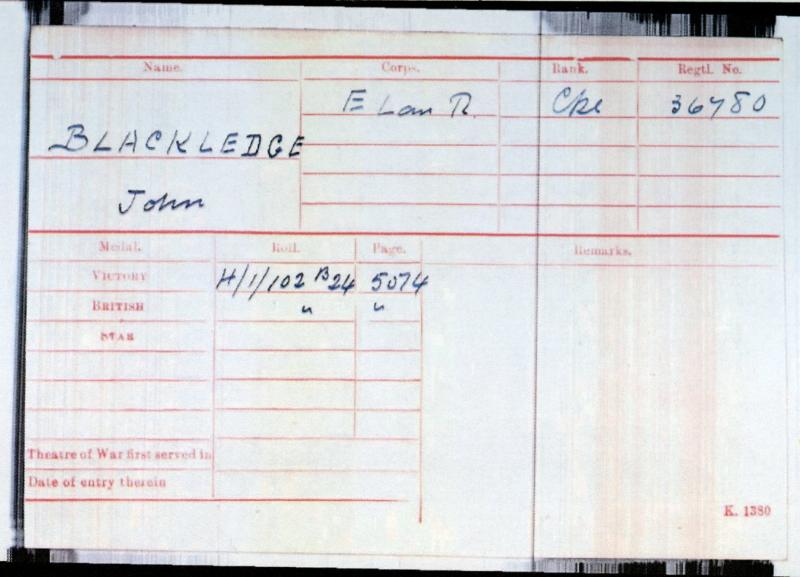 Name. Corps. Rank. Regtl. No.
E Lan R. Cpl 36780
BLACKLEDGE
John
Medal. Roll. Page. Remarks.
VICTORY H/1/102 B24 5074
BRITISH " "
STAR
Theatre of War first served in
Date of entry therein
K. 1380